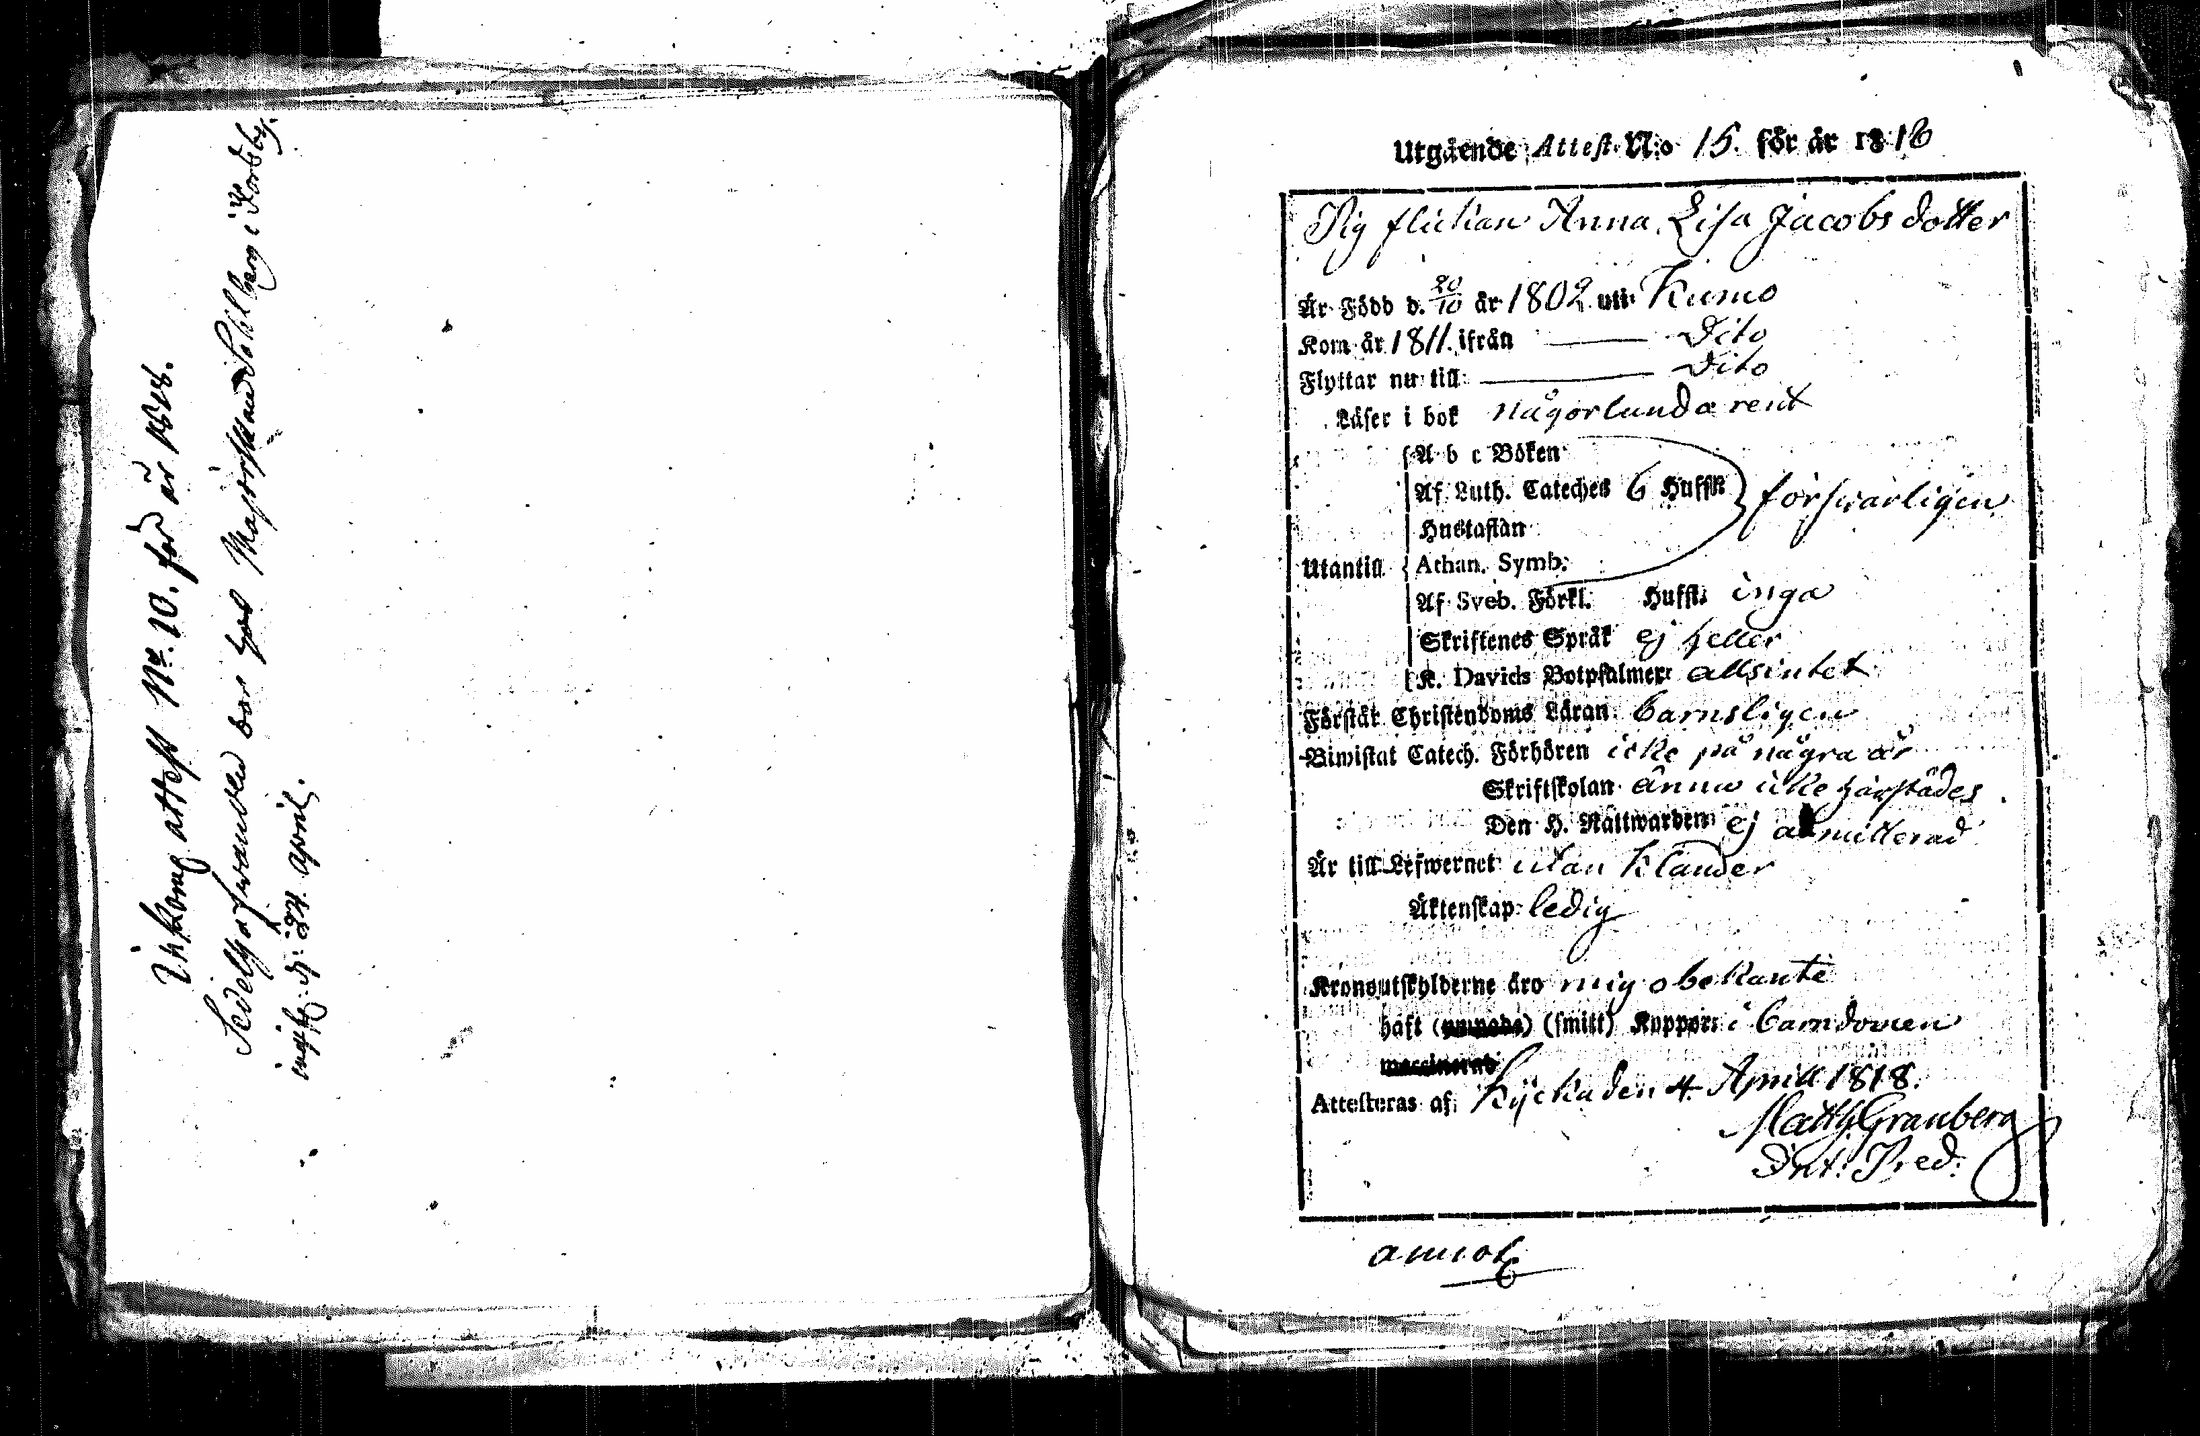 Inkom attest No. 10. för år 1818.
Sedelhafwanden bor hos Majorskan Sohlberg i Forsby.
ingift: d: 24. April.
Utgående Attest N:o 15. för år 1818
Pig flickan Anna Lisa Jacobs dotter
Är Född d. 20/10 år 1802 uti Kumo
Kom år 1811. ifrån Dito
Flyttar nu till Dito
Läser i bok någorlunda rent
A b c Boken
Af Luth. Cateches 6 Hufst. försvarligen
Hustaflan
Utantill Athan. Symb.
Af Sveb. Förkl. Hufst. inga
Skriftenes Språk ej heller
K. Davids Botpsalmer allsintet
Förstår Christendoms Läran barnsligen
Biwistat Catech. Förhören icke på några år
Skriftskolan ännu icke härstädes
Den H. Nattwarden ej admitterad
Är till Lefwernet utan klander
Äktenskap ledig
Kronoutskylderne äro mig obekante
haft (smitt) Kuppor i barndomen
Attesteras af Kjickaden 4. Aprill 1818.
Matth Granberg
Int: Pred:
annot